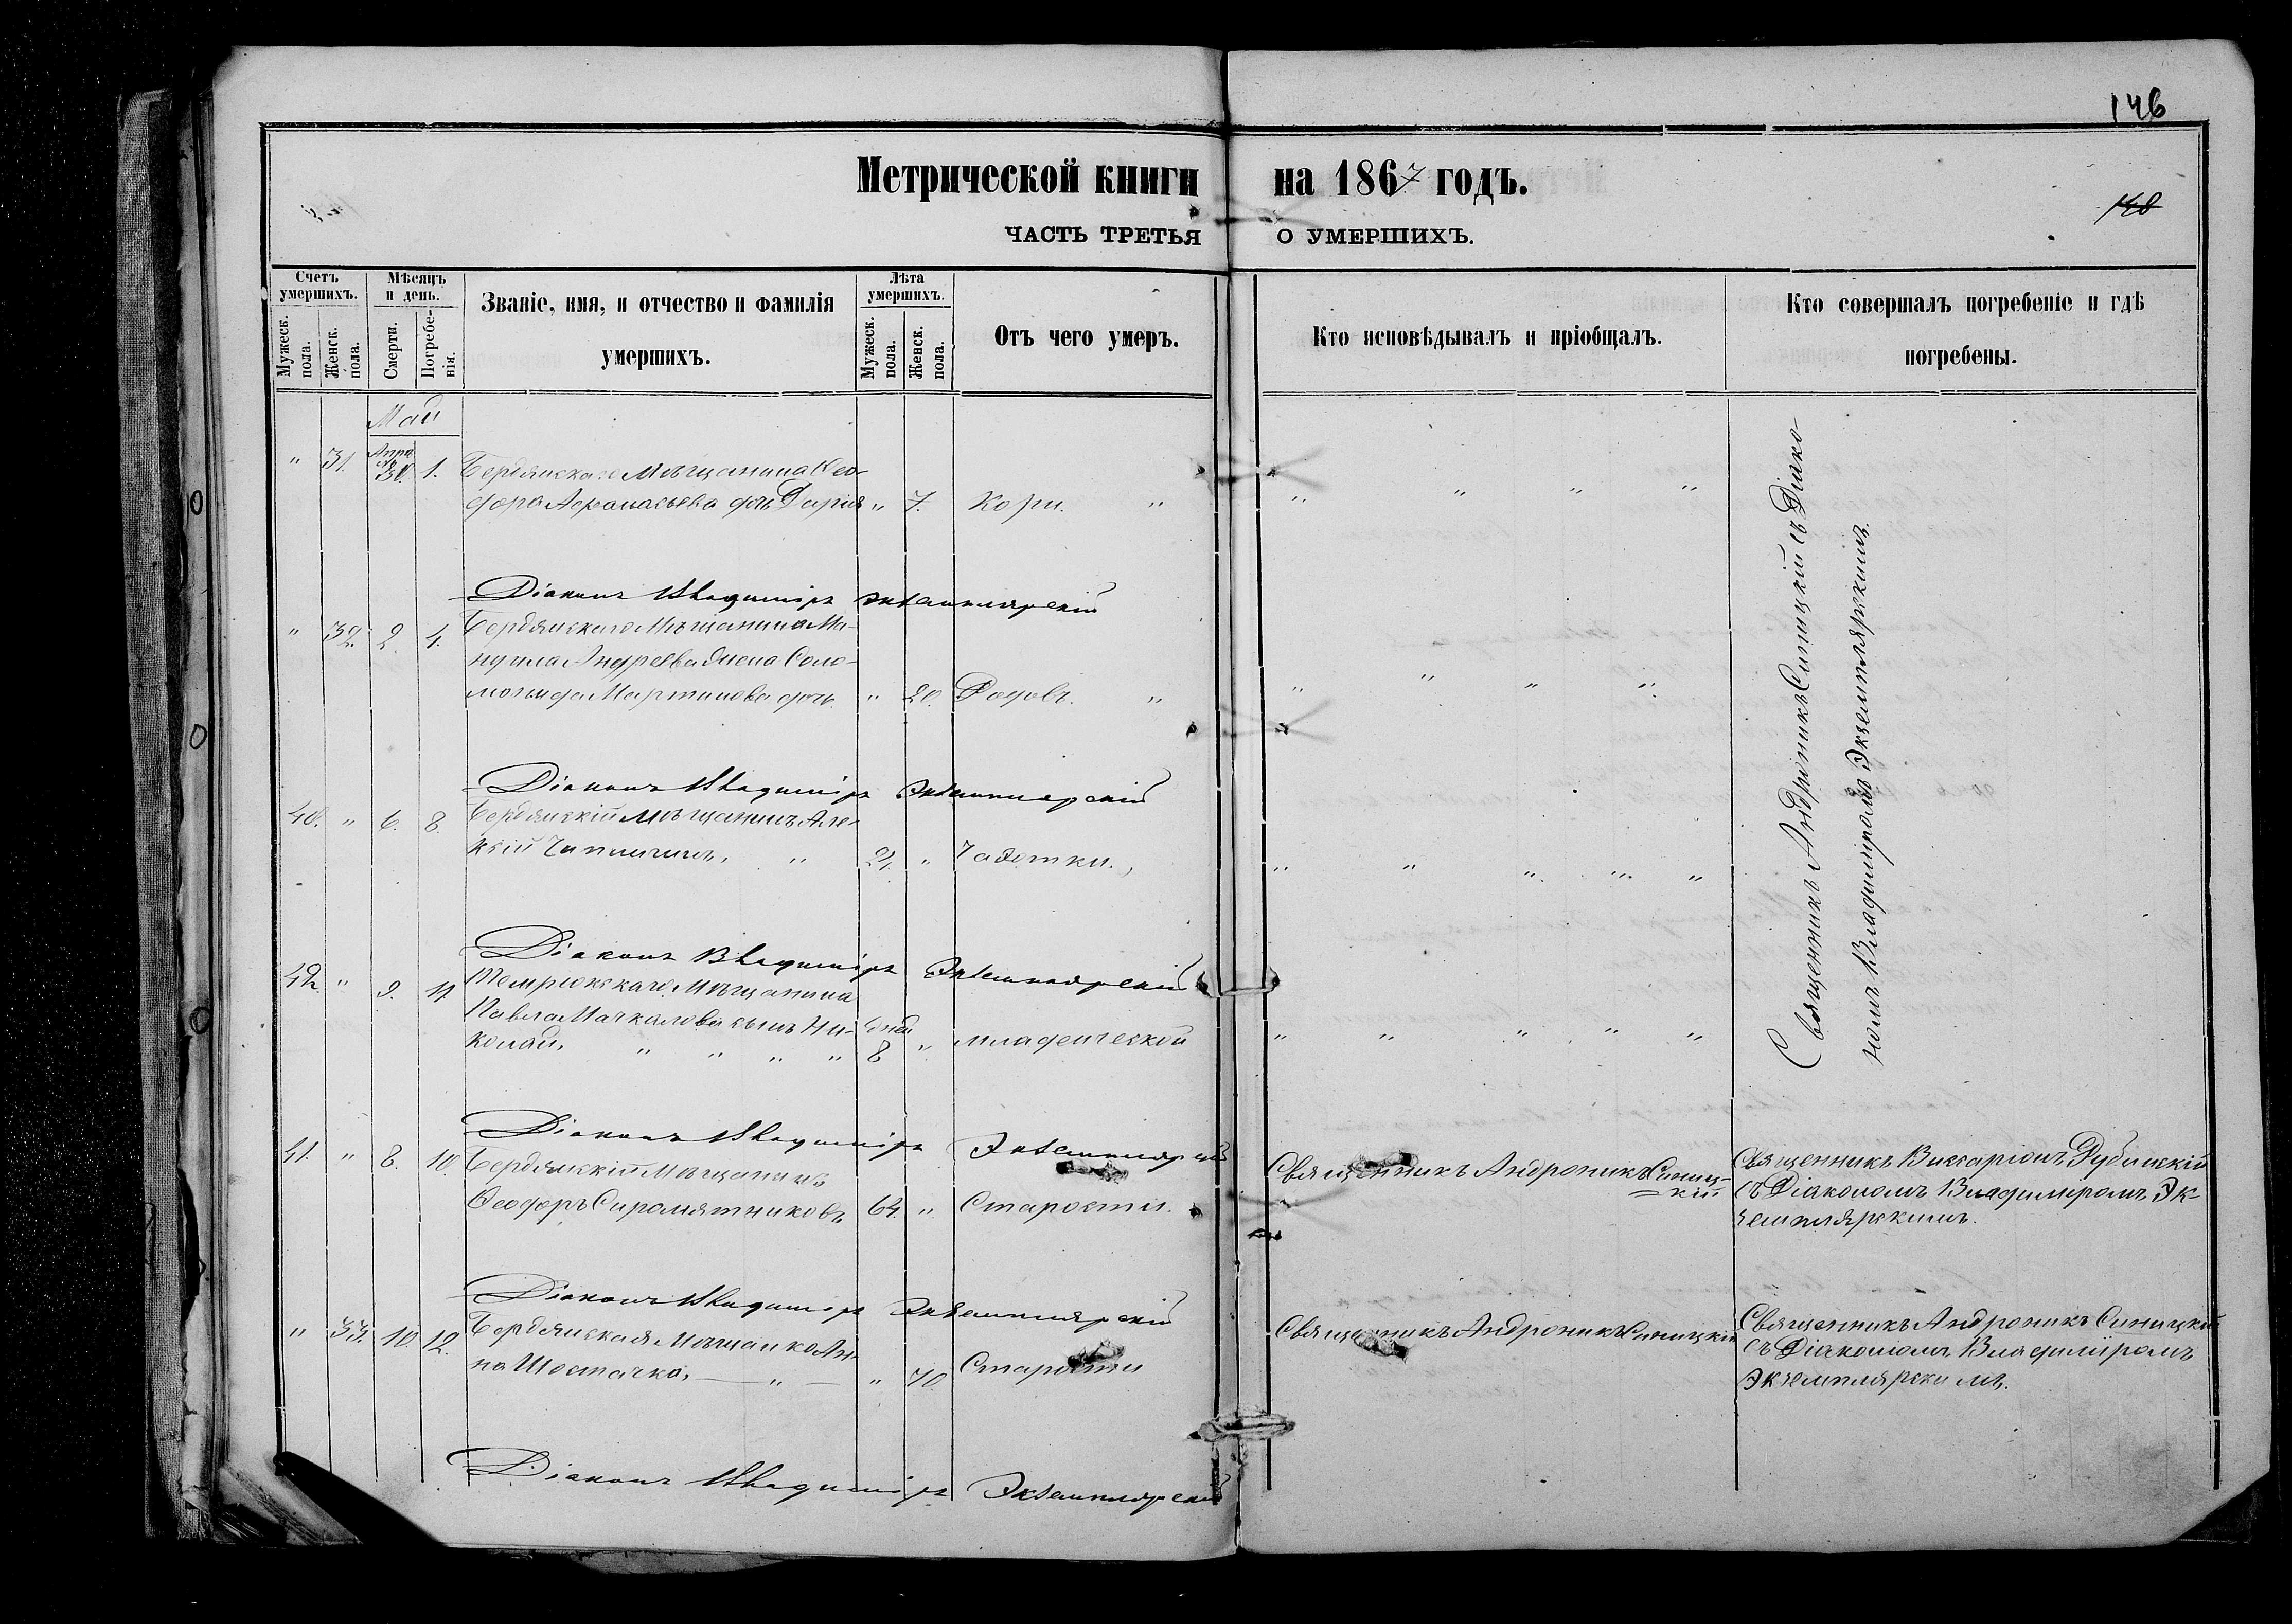 146
Метрической книги на 1867 годъ.
148
ЧАСТЬ ТРЕТЬЯ О УМЕРШИХЪ.
Счетъ умершихъ.
Мужеск. пола.
Женск. пола.
Мѣсяцъ и день.
Смерти.
Погребенія.
Званіе, имя, и отчество и фамилія
умершихъ.
Лѣта умершихъ.
Мужеск. пола.
Женск. пола.
Отъ чего умеръ.
Кто исповѣдывалъ и пріобщалъ.
Кто совершалъ погребеніе и гдѣ
погребены.
Май
" 31. 30. 1. Бердянскаго Мѣщанина Ѳео-
дора Аѳанасьева дочь Дарія " 7. Кори. "
Діаконъ Владиміръ Экземплярскій
" 32. 2. 4. Бердянскаго Мѣщанина Ма-
нуила Андреева жена Соло-
монида Мартинова дочь. " 20. Родовъ. "
Діаконъ Владиміръ Экземплярскій
40. " 6. 8. Бердянскій Мѣщанинъ Але-
ксій 21. " Чахотки.
Діаконъ Владиміръ Экземплярскій
42. " 9. 11 Темрюкскаго Мѣщанина
Павла Мачкалова сынъ Ни- дней
колай, " " " " 8 " младенческой
Священникъ Андроникъ Синицкій съ Діако-
номъ Владиміромъ Экземплярскимъ.
Діаконъ Владиміръ Экземплярскій
41. " 8. 10. Бердянскій Мѣщанинъ
Ѳеодоръ Сиромятниковъ 64. " Старости.
Священникъ Андроникъ Синиц-
кій
Священникъ Виссаріонъ Рубинскій
съ Діакономъ Владиміромъ Эк-
земплярскимъ.
Діаконъ Владиміръ Экземплярскій
" 33. 10. 12. Бердянская Мѣщанка Ан-
на Шостачка, " " 70. Старости
Священникъ Андроникъ Синицкій
Священникъ Андроникъ Синицкій
съ Діакономъ Владиміромъ
Экземплярскимъ.
Діаконъ Владиміръ Экземплярскій